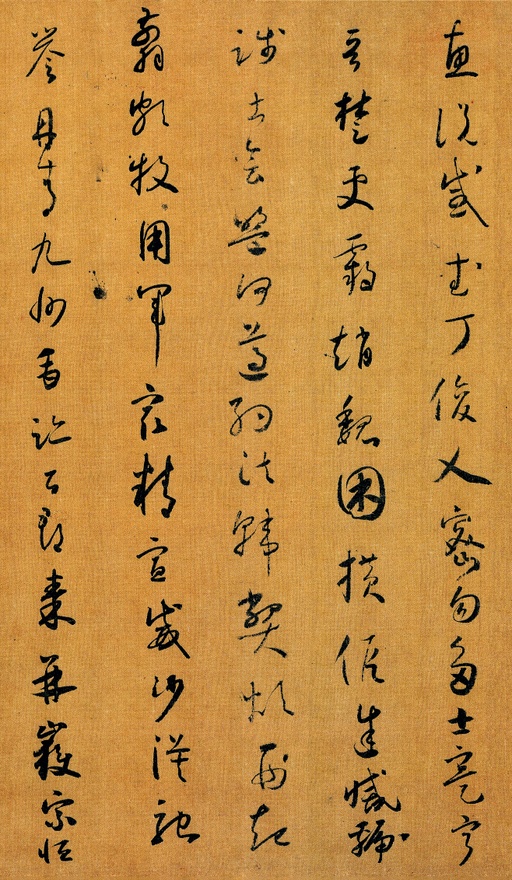 惠說感武丁俊乂密勿多士寔寧
晉楚更霸趙魏困橫假途滅虢
踐土會盟何遵約法韓弊煩刑起
翦頗牧用軍最精宣威沙漠馳
譽丹青九州禹跡百郡秦并嶽宗恒